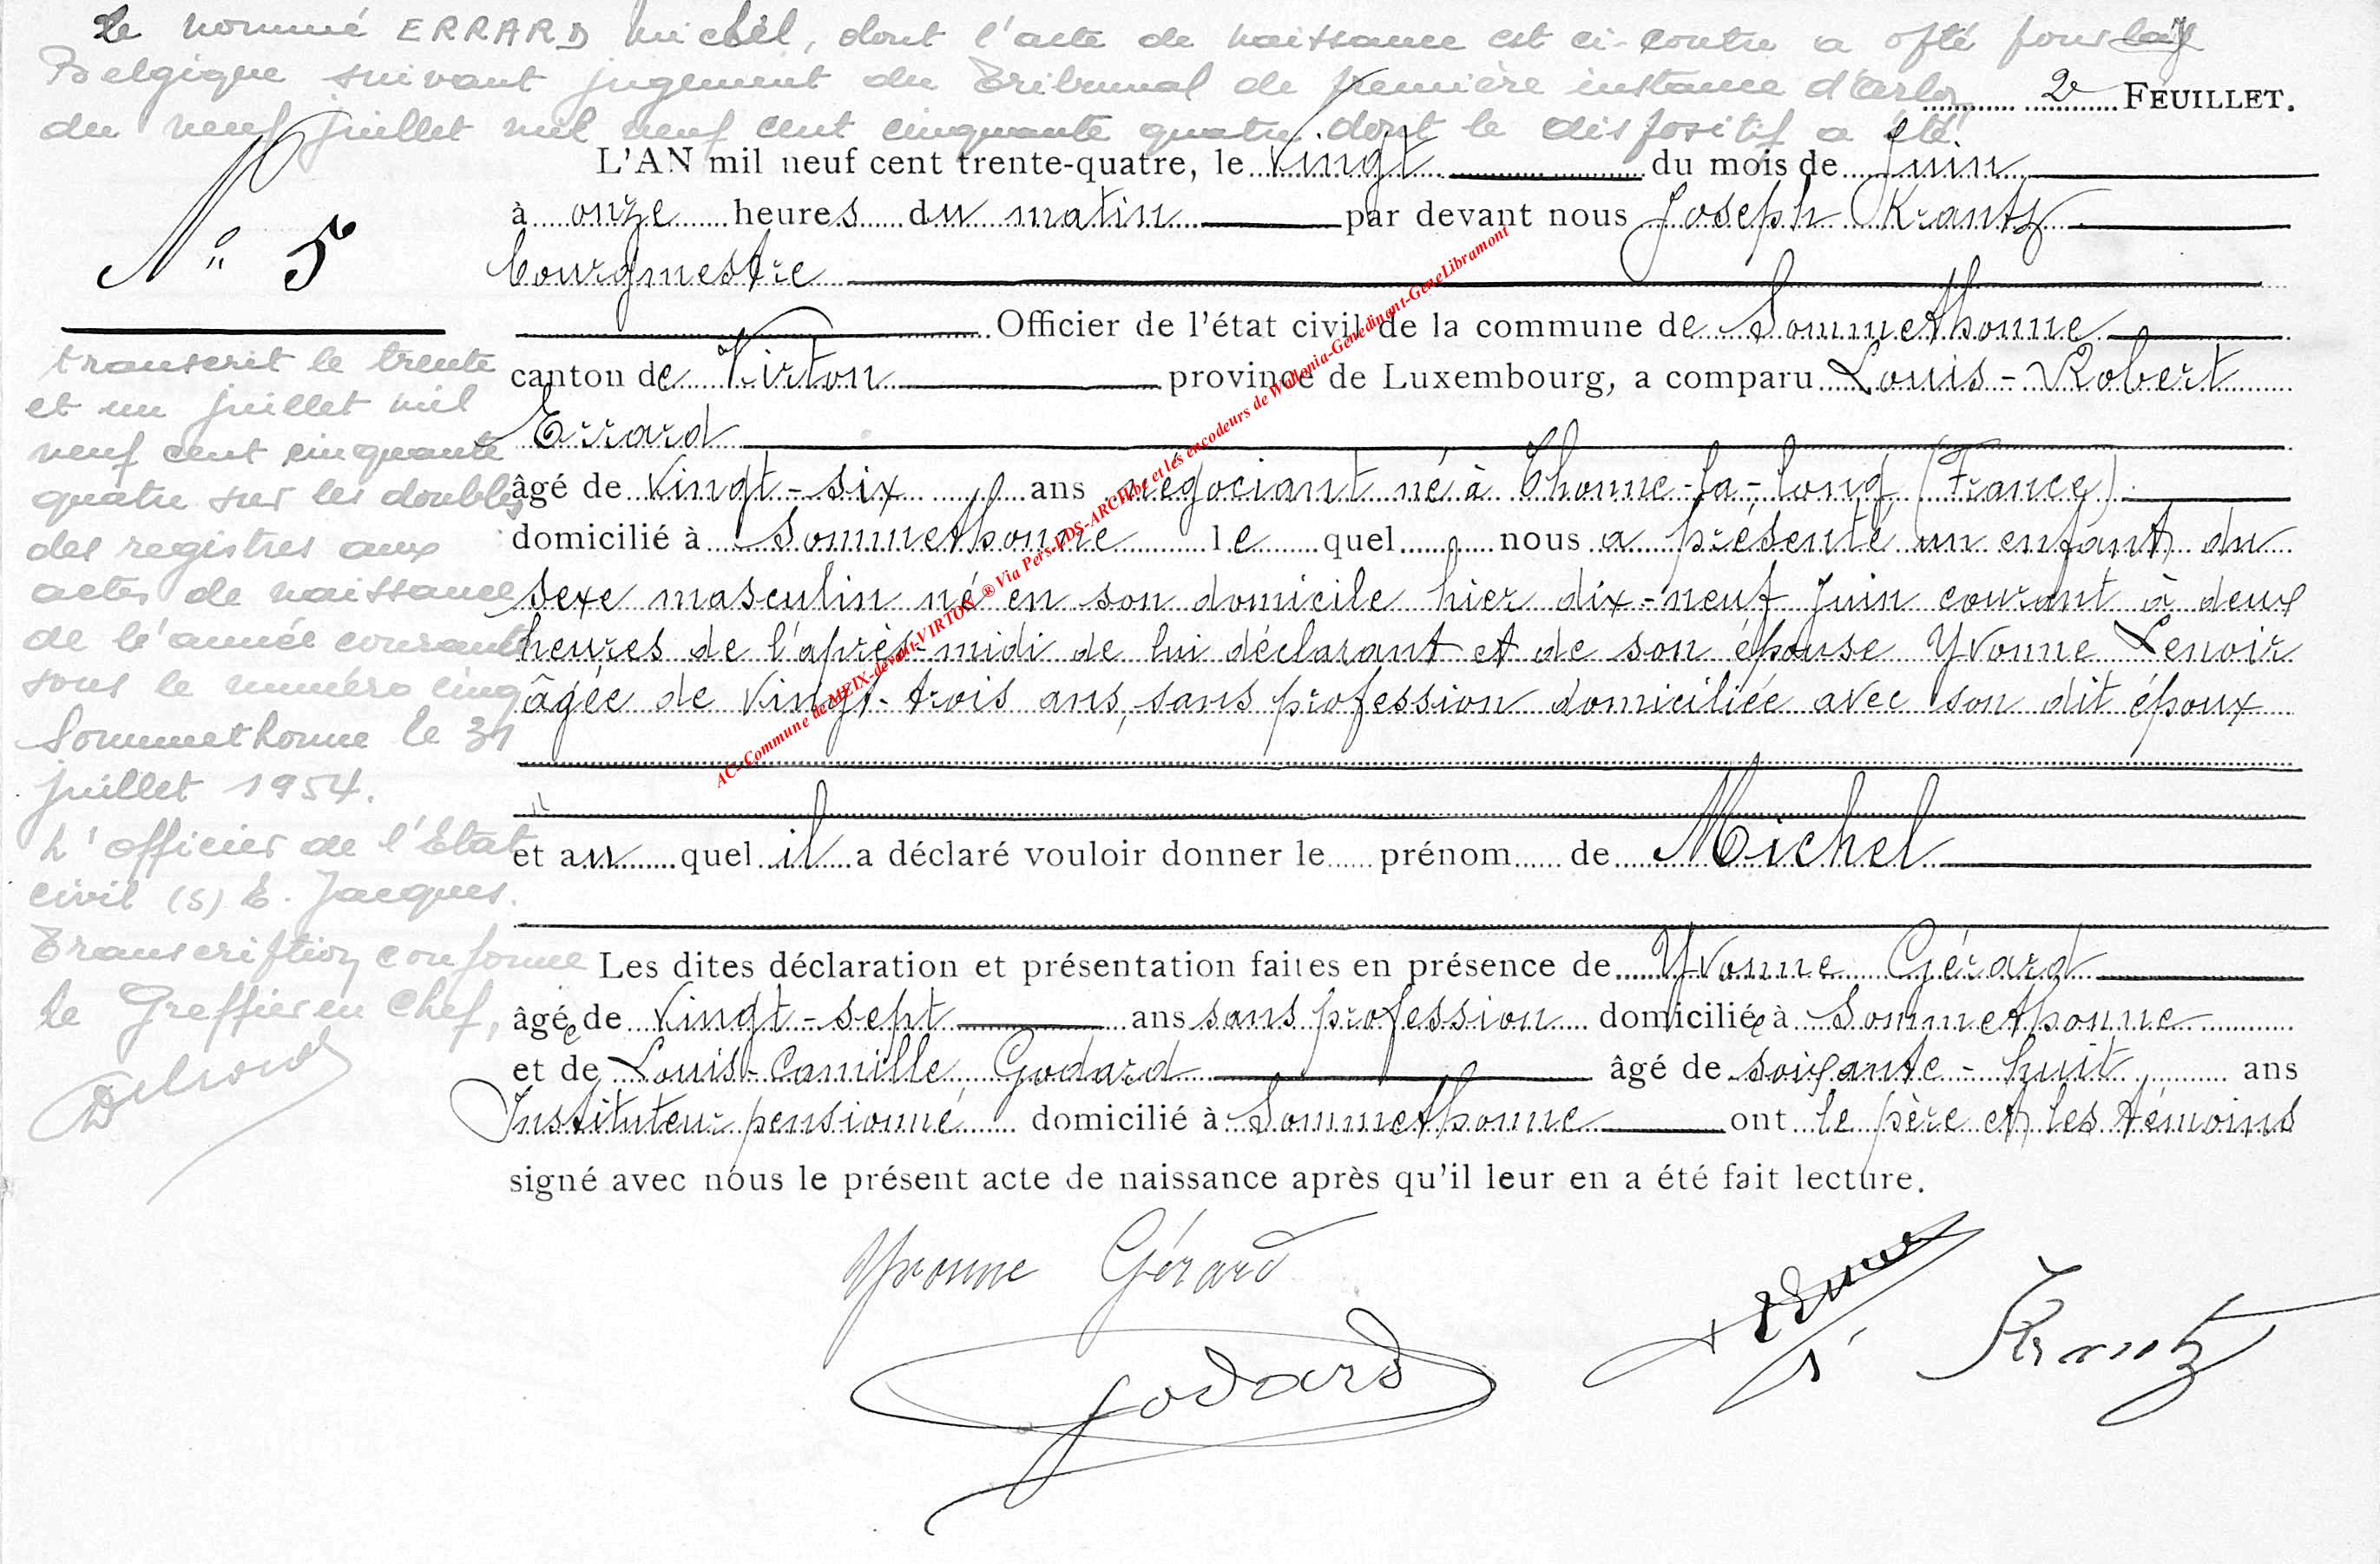 Le nommé ERRARD Michel, dont l'acte de naissance est ci-contre a opté pour la
Belgique suivant jugement du Tribunal de première instance d'Arlon
2e FEUILLET.
du neuf juillet mil neuf cent cinquante quatre dont le dispositif a été
L'AN mil neuf cent trente-quatre, le vingt du mois de Juin
N° 5
à onze heures du matin par devant nous Joseph Krantz
bourgmestre
Officier de l'état civil de la commune de Sommethonne
canton de Virton province de Luxembourg, a comparu Louis-Robert
Errard
âgé de vingt-six ans négociant né à Thonne-la-Long (France)
domicilié à Sommethonne le quel nous a présenté un enfant du
sexe masculin né en son domicile hier dix-neuf Juin courant à deux
heures de l'après-midi de lui déclarant et de son épouse Yvonne Lenoir
âgée de vingt-trois ans, sans profession domiciliée avec son dit époux
et au quel il a déclaré vouloir donner le prénom de Michel
Les dites déclaration et présentation faites en présence de Yvonne Gérard
âgée de vingt-sept ans sans profession domiciliée à Sommethonne
et de Louis-Camille Godard âgé de soixante-huit ans
Instituteur pensionné domicilié à Sommethonne ont le père et les témoins
signé avec nous le présent acte de naissance après qu'il leur en a été fait lecture.
transcrit le trente
et un juillet mil
neuf cent cinquante
quatre sur les doubles
des registres aux
actes de naissance
de l'année courante
sous le numéro cinq
Sommethonne le 31
juillet 1954.
L'officier de l'Etat
civil (s) E. Jacques.
Transcription conforme
Le Greffier en Chef,
Yvonne Gérard
Godard
Krantz
AC-Commune de MEIX-devant-VIRTON ® Via Pers-LDS-ARCHbe et les encodeurs de Wallonia-Genedinant-GeneLibramont